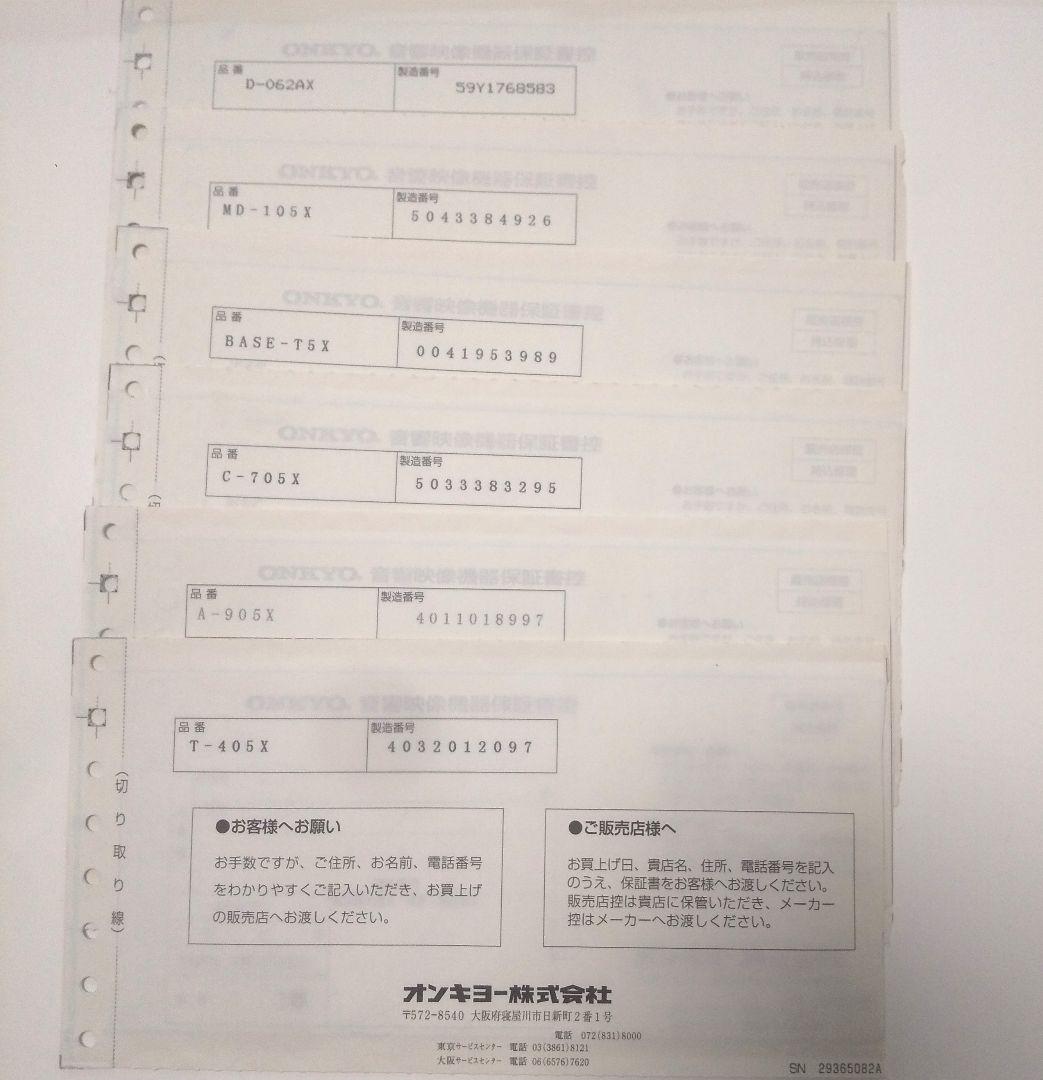 ONKYO 音響映像機器保証書控
品番 製造番号
D-062AX 59Y1768583
ONKYO 音響映像機器保証書控
品番 製造番号
MD-105X 5043384926
ONKYO 音響映像機器保証書控
品番 製造番号
BASE-T5X 0041953989
ONKYO 音響映像機器保証書控
品番 製造番号
C-705X 5033383295
ONKYO 音響映像機器保証書控
品番 製造番号
A-905X 4011018997
ONKYO 音響映像機器保証書控
品番 製造番号
T-405X 4032012097
(切り取り線)
●お客様へお願い
お手数ですが、ご住所、お名前、電話番号
をわかりやすくご記入いただき、お買上げ
の販売店へお渡しください。
●ご販売店様へ
お買上げ日、貴店名、住所、電話番号を記入
のうえ、保証書をお客様へお渡しください。
販売店控は貴店に保管いただき、メーカー
控はメーカーへお渡しください。
オンキヨー株式会社
〒572-8540 大阪府寝屋川市日新町2番1号
電話 072(831)8000
東京サービスセンター 電話 03(3861)8121
大阪サービスセンター 電話 06(6576)7620
SN 29365082A